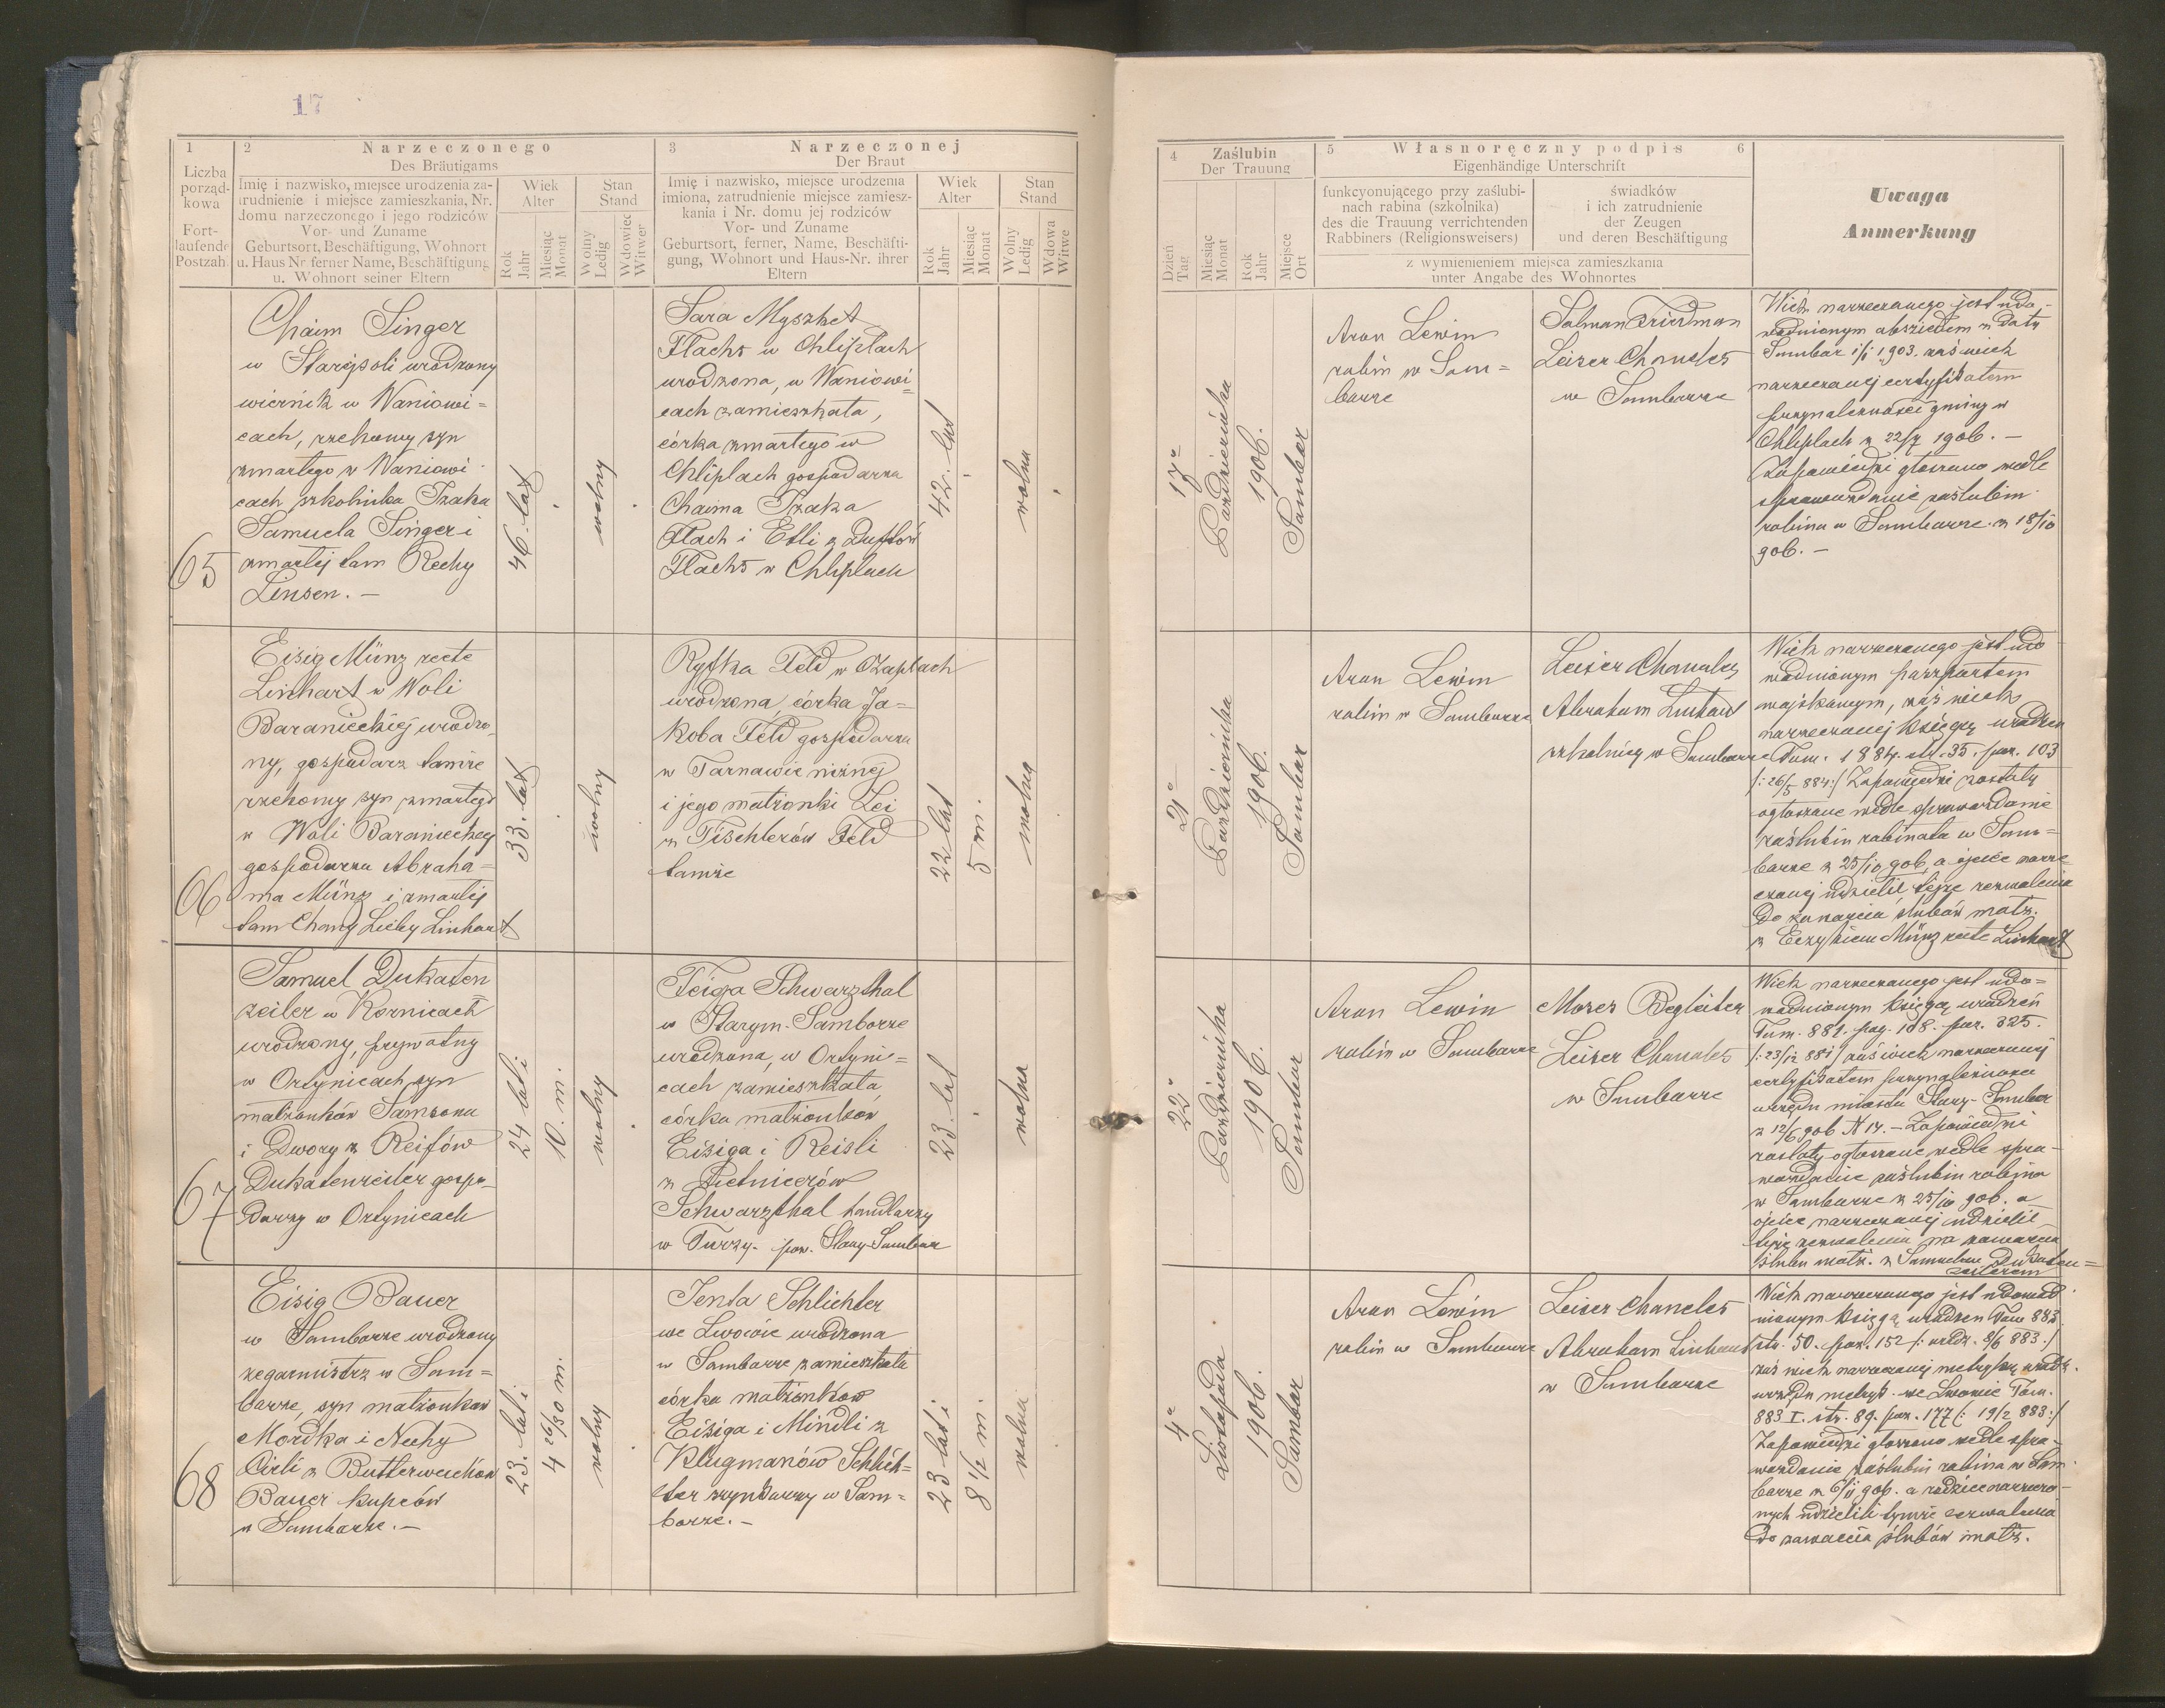 17
1
Liczba
porząd-
kowa
Fort-
laufende
Postzah.
2 Narzeczonego
Des Bräutigams
Imię i nazwisko, miejsce urodzenia za-
trudnienie i miejsce zamieszkania, Nr.
domu narzeczonego i jego rodziców
Vor- und Zuname
Geburtsort, Beschäftigung, Wohnort
u. Haus Nr ferner Name, Beschäftigung
u. Wohnort seiner Eltern
Wiek
Alter
Rok
Jahr
Miesiąc
Monat
Stan
Stand
Wolny
Ledig
Wdowiec
Witwer
3 Narzeczonej
Der Braut
Imię i nazwisko, miejsce urodzenia
imiona, zatrudnienie miejsce zamiesz-
kania i Nr. domu jej rodziców
Vor- und Zuname
Geburtsort, ferner, Name, Beschäfti-
gung, Wohnort und Haus-Nr. ihrer
Eltern
Wiek
Alter
Rok
Jahr
Miesiąc
Monat
Stan
Stand
Wolny
Ledig
Wdowa
Witwe
4 Zaślubin
Der Trauung
Dzień
Tag
Miesiąc
Monat
Rok
Jahr
Miejsce
Ort
5 Własnoręczny podpis 6
Eigenhändige Unterschrift
funkcyonującego przy zaślubi-
nach rabina (szkolnika)
des die Trauung verrichtenden
Rabbiners (Religionsweisers)
świadków
i ich zatrudnienie
der Zeugen
und deren Beschäftigung
z wymienieniem miejsca zamieszkania
unter Angabe des Wohnortes
Uwaga
Anmerkung
65
Chaim Singer
w Starejsoli urodzony
wiernik w Waniowi=
cach, rzekomy syn
zmarłego w Waniowi-
cach szkolnika Izaka
Samuela Singer i
zmarłej tam Rechy
Linsen. —
46. lat
wolny
Sara Myszket
Flachs w Chliplach
urodzona, w Waniowi=
cach zamieszkała,
córka zmarłego w
Chliplach gospodarza
Chaima Izaka
Flach i Etli z
Flachs w Chliplach
42. lat
wolna
17
Października
1906.
Sambor
Aron Lewin
rabin w Sam=
borze
Salman Friedman
Leiser Chameles
w Samborze
Wiek narzeczonego jest udo-
wodnionym abszedem z daty
Sambor 1/1 1903. zaś wiek
narzeczonej certyfikatem
przynależności gminy w
Chliplach z 22/7 1906. —
Zapowiedzi głoszono wedle
sprawozdanie zaślubin
rabina w Samborze z 18/10
906. —
66
Eisig Münz recte
Linhart w Woli
Baranieckiej urodzo-
ny, gospodarz tamże
rzekomy syn zmarłego
w Woli Baranieckiej
gospodarza Abraha=
ma Münz i zmarłej
tam Chany Lieby Linhart
33. lat
wolny
Ryfka Feld w Czaplach
urodzona, córka Ja=
koba Feld gospodarza
w Tarnawie niżnej
i jego małżonki Lei
z Tischlerów Feld
tamże
22 lat
5 m.
wolna
21
Października
1906.
Sambor
Aron Lewin
rabin w Samborze
Leiser Chameles
Abraham Linhart
szkolnicy w Samborze
Wiek narzeczonego jest udo
wodnionym paszportem
wojskowym, zaś wiek
narzeczonej księgą urodzen
Tom. 1884. str. 35. poz. 103
/: 26/5 884:/ Zapowiedzi zostały
ogłoszone wedle sprawozdanie
zaślubin rabinata w Sam=
borze z 25/10 906, a ojciec narze
czonej udzielił tejże zezwolenia
do zawarcia ślubów małż.
z Eizykiem Münz recte Linhart
67
Samuel Dukaten
zeiler w Kornicach
urodzony, prywatny
w Ortynicach, syn
małżonków Samsona
i Dwory z Reifów
Dukatenzeiler gospo-
darzy w Ortynicach
24 lat i
10. m.
wolny
Feiga Schwarzthal
w Starym-Samborze
urodzona, w Ortyni=
cach zamieszkała
córka małżonków
Eisiga i Reisli
z
Schwarzthal handlarzy
w Turzy. pow. Stary-Sambor
23. lat
wolna
22
Października
1906.
Sambor
Aron Lewin
rabin w Samborze
Moses Begleiter
Leiser Chameles
w Samborze
Wiek narzeczonego jest udo=
wodnionym księgą urodzeń
Tom. 881. pag. 108. poz. 325.
/: 23/12 881/ zaś wiek narzeczonej
certyfikatem przynależności
urzędu miasta Stary-Sambor
z 12/6 906 N 14. — Zapowiedzi
zostały ogłoszone wedle spra-
wozdanie zaślubin rabina
w Samborze z 25/10 906. a
ojciec narzeczonej udzielił
tejże zezwolenia na zawarcia
ślubu małż. z Samuelem Dukaten=
zeilerem
68
Eisig Bauer
w Samborze urodzony
zegarmistrz w Sam=
borze, syn małżonków
Mordka i Nechy
Cirli z Butterweichów
Bauer kupców
w Samborze. —
23. lat i
4 26/30 m.
wolny
Jenta Schlichter
we Lwowie urodzona
w Samborze zamieszkała
córka małżonków
Eisiga i Mindli z
Klugmanów Schlich=
ter szynkarzy w Sam=
borze. —
23 lat i
8 1/2 m.
wolna
4
Listopada
1906.
Sambor
Aron Lewin
rabin w Samborze
Leiser Chameles
Abraham Linhart
w Samborze
Wiek narzeczonego jest udowod
nionym księgą urodzen Tom 883
str. 50. poz. 152 /: urodz. 8/6 883./
zaś wiek narzeczonej metryką urodz.
urzędu metryk. we Lwowie Tom.
883 I. str. 89. poz. 177 /: 19/2 883:/
Zapowiedzi głoszono wedle spra-
wozdanie zaślubin rabina w Sam
borze z 6/11 906. a rodzice narzeczo-
nych udzielili tymże zezwolenia
do zawarcia ślubów małż.